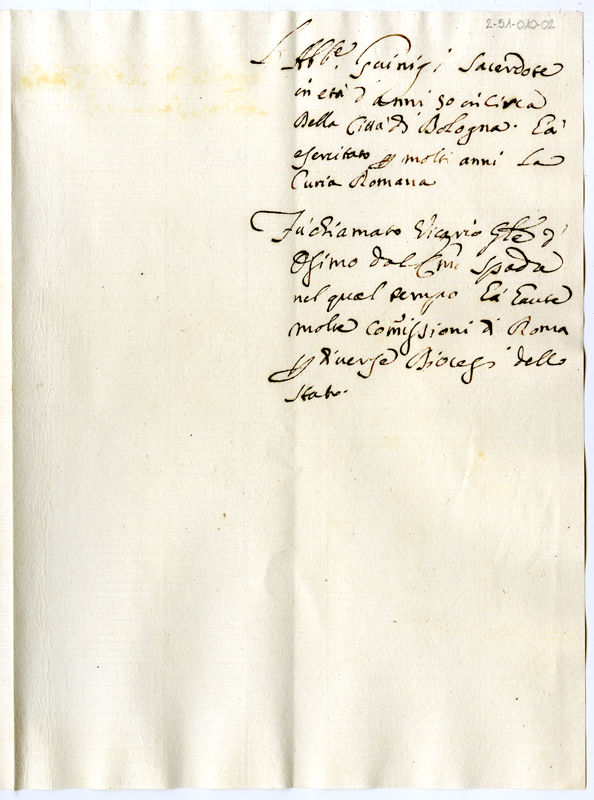 2-51-010-02
L'Abbe. Guinigi Sacerdote
in età d'anni 50 in circa
della Città di Bologna. Ea
esercitato p molti anni La
Curia Romana
Fu chiamato Vicario Gñle d'
Osimo dal Spada
nel qual tempo Ea Eaute
molte Comissioni di Roma
p diverse Diocesi dello
Stato.